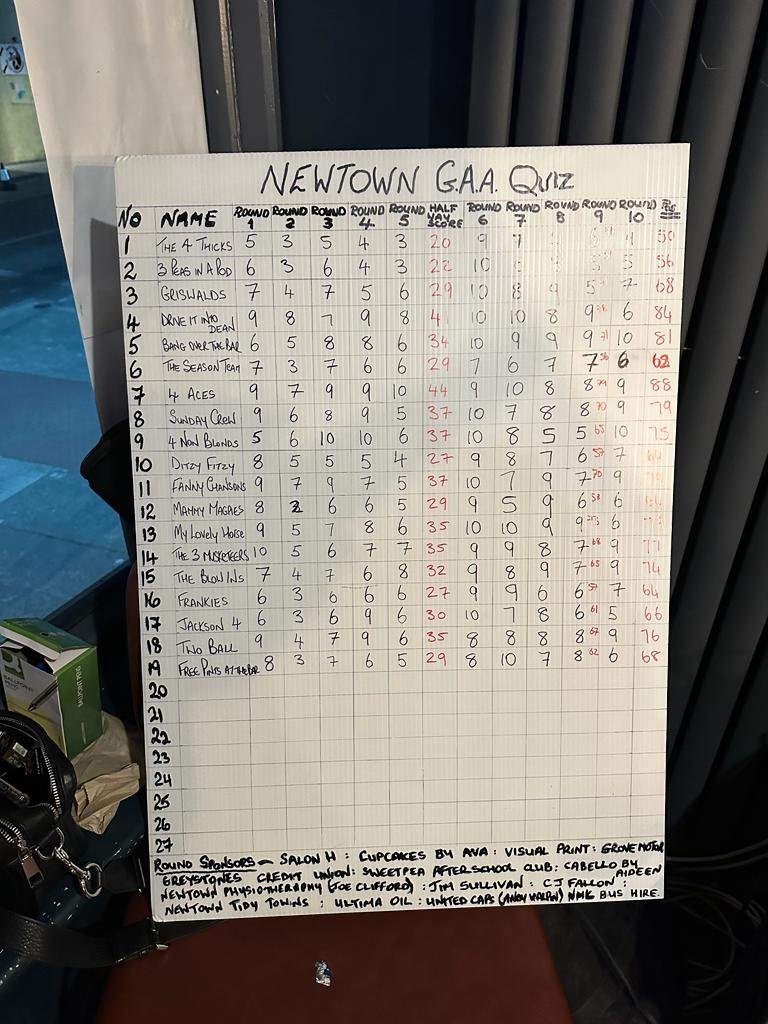 NEWTOWN G.A.A. QUIZ
NO NAME ROUND 1 ROUND 2 ROUND 3 ROUND 4 ROUND 5 HALF WAY SCORE ROUND 6 ROUND 7 ROUND 8 ROUND 9 ROUND 10
1 THE 4 THICKS 5 3 5 4 3 20 9 7 50
2 3 PEAS IN A POD 6 3 6 4 3 22 10 5 56
3 GRISWALDS 7 4 7 5 6 29 10 8 9 5 7 68
4 DRIVE IT INTO DEAN 9 8 7 9 8 4 10 10 8 9 6 84
5 BANG OVER THE BAR 6 5 8 8 6 34 10 9 9 9 71 10 81
6 THE SEASON TEAM 7 3 7 6 6 29 7 6 7 7 56 6 62
7 4 ACES 9 7 9 9 10 44 9 10 8 8 79 9 88
8 SUNDAY CREW 9 6 8 9 5 37 10 7 8 8 70 9 79
9 4 NON BLONDS 5 6 10 10 6 37 10 8 5 5 65 10 75
10 DITZY FITZY 8 5 5 5 4 27 9 8 7 6 57 7 64
11 FANNY CHANSONS 9 7 9 7 5 37 10 7 9 7 70 9
12 MAMMY MAGAES 8 2 6 6 5 29 9 5 9 6 58 6
13 MY LOVELY HORSE 9 5 7 8 6 35 10 10 9 9 73 6
14 THE 3 MUSKETEERS 10 5 6 7 7 35 9 9 8 7 68 9 77
15 THE BLOW INS 7 4 7 6 8 32 9 8 9 7 65 9 74
16 FRANKIES 6 3 6 6 6 27 9 9 6 6 57 7 64
17 JACKSON 4 6 3 6 9 6 30 10 7 8 6 61 5 66
18 TWO BALL 9 4 7 9 6 35 8 8 8 8 67 9 76
19 FREE PINTS AT THE BAR 8 3 7 6 5 29 8 10 7 8 62 6 68
20
21
22
23
24
25
26
27
ROUND SPONSORS - SALON H : CUPCAKES BY AVA : VISUAL PRINT : GROVE MOTOR
GREYSTONES CREDIT UNION : SWEETPEA AFTERSCHOOL CLUB : CABELLO BY AIDEEN
NEWTOWN PHYSIOTHERAPHY (JOE CLIFFORD) : JIM SULLIVAN : CJ FALLON :
NEWTOWN TIDY TOWNS : ULTIMA OIL : UNITED CAPS (ANDY HALPIN) NMK BUS HIRE.
BALLPOINT PENS